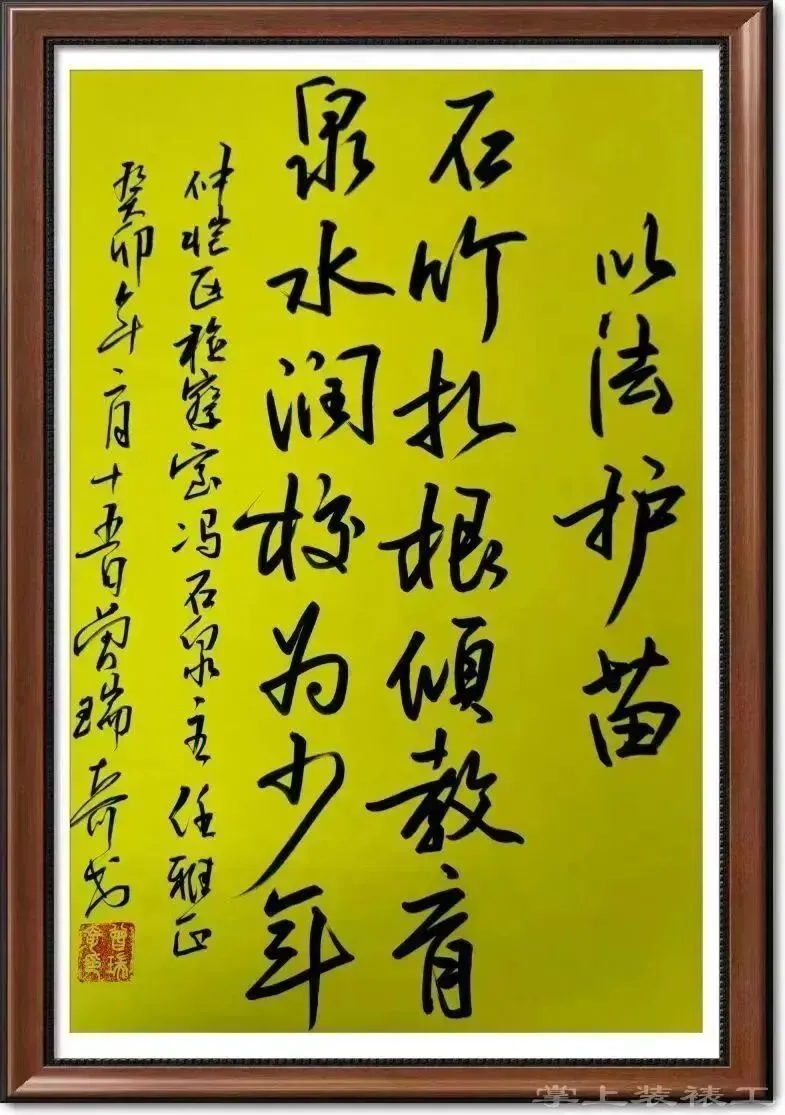 以法护苗
石竹扎根倾教育
泉水润校为少年
仲恺区检察室冯石泉主任雅正
癸卯年二月十五日曾瑞奇书
掌上装裱工